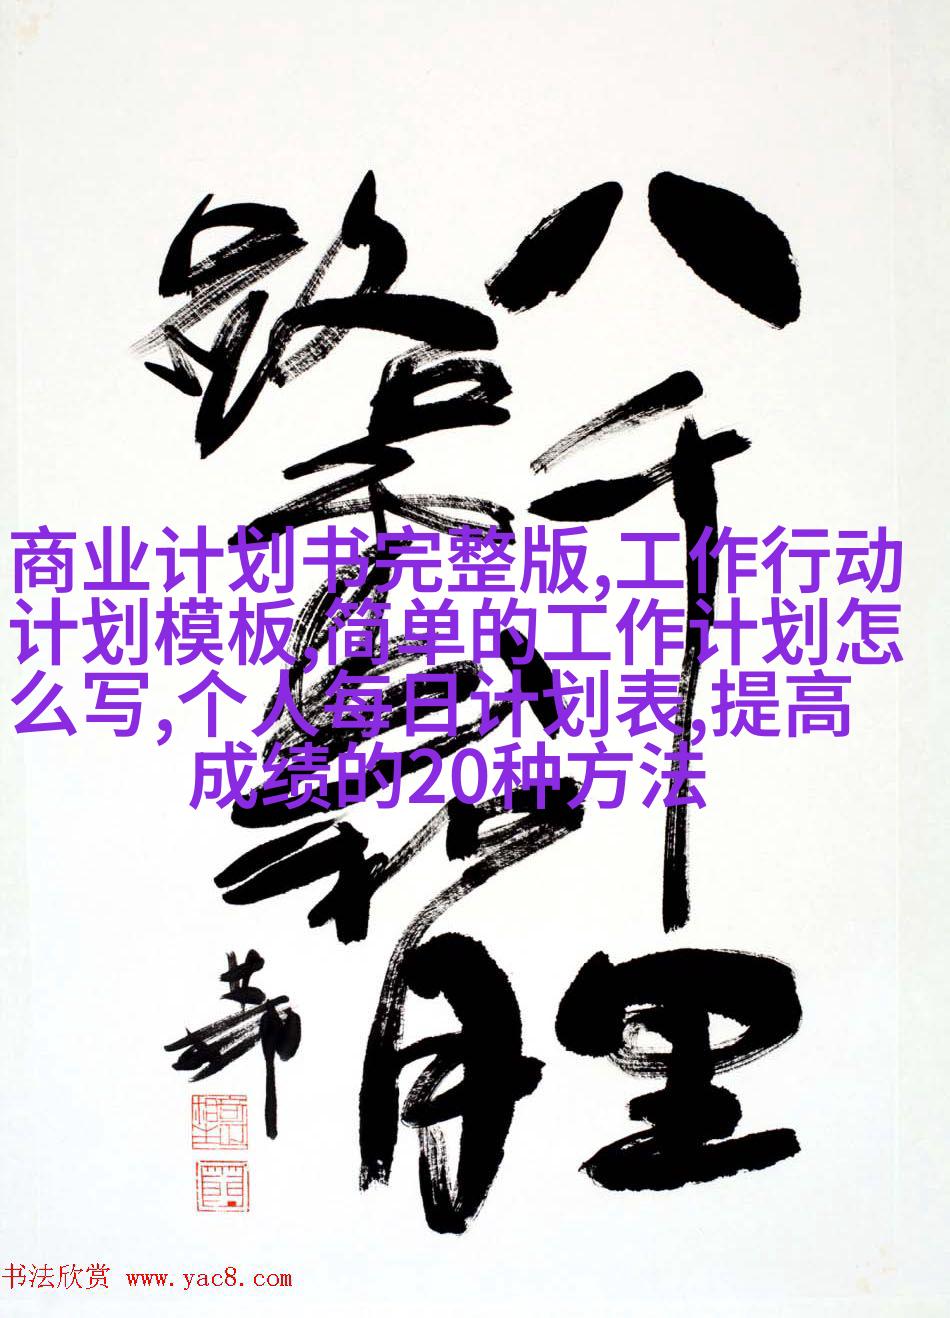 八千里
路云和月
商业计划书完整版,工作行动
计划模板,简单的工作计划怎
么写,个人每日计划表,提高
成绩的20种方法
书法欣赏 www.yac8.com